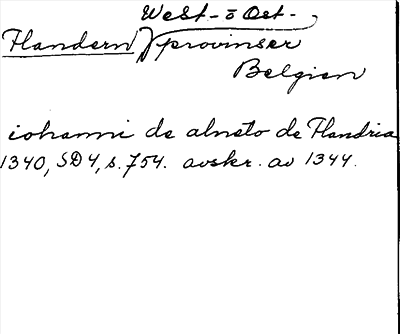 West- o Öst-
Flandern provinser
Belgien
iohanni de alneto de Flandria
1340, SD4, s. 754. avskr. av 1344.